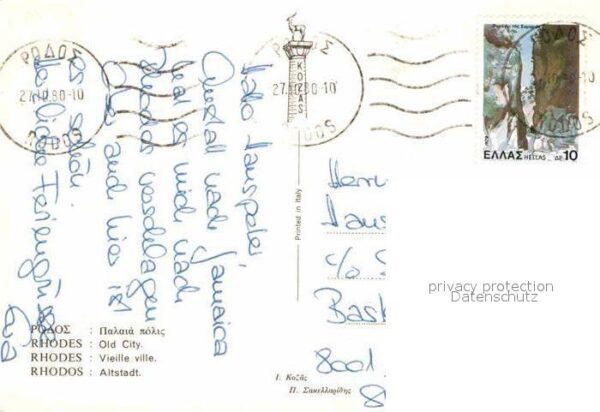 ΡΟΔΟΣ
27.10.80-10
RODOS
ΚΟΖΑΣ
ΕΛΛΑΣ HELLAS ΔΡ 10
Hallo
Anstatt nach Jamaica
hat es mich nach
Rhodos verschlagen
und hier ist
es schön
Liebe Feriengrüsse
Printed in Italy
Herrn
c/o
8001
privacy protection
Datenschutz
ΡΟΔΟΣ : Παλαιά πόλις
RHODES : Old City.
RHODES : Vieille ville.
RHODOS : Altstadt.
Ι. Κοζᾶς
Π. Σακελλαρίδης